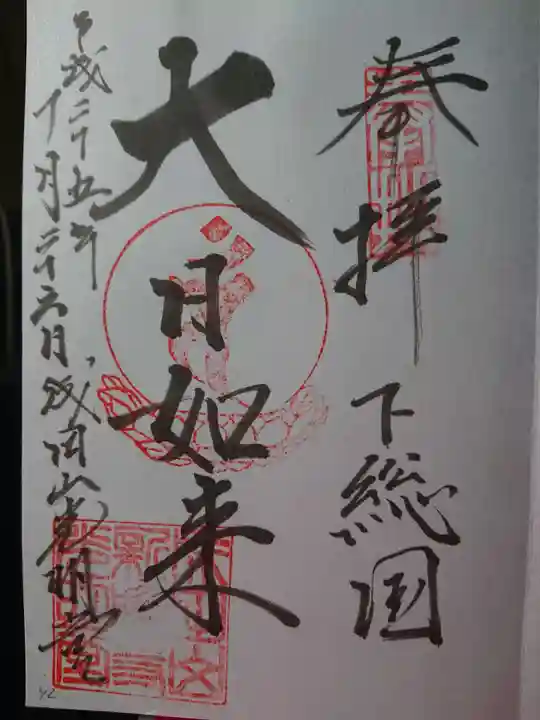 奉拝 下総国
大日如来
平成二十五年
十一月二十六日 成田山光明堂